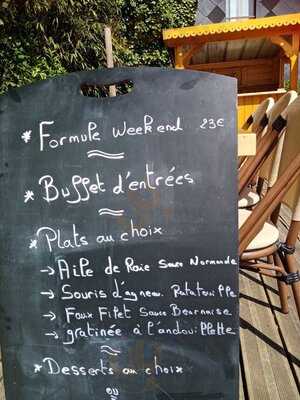 * Formule Weekend 23€
* Buffet d'entrées
* Plats au choix
→ Aile de Raie Sauce Normande
→ Souris d'agneau Ratatouille
→ Faux Filet Sauce Bearnaise
→ gratinée à l'andouillette
* Desserts au choix
ou